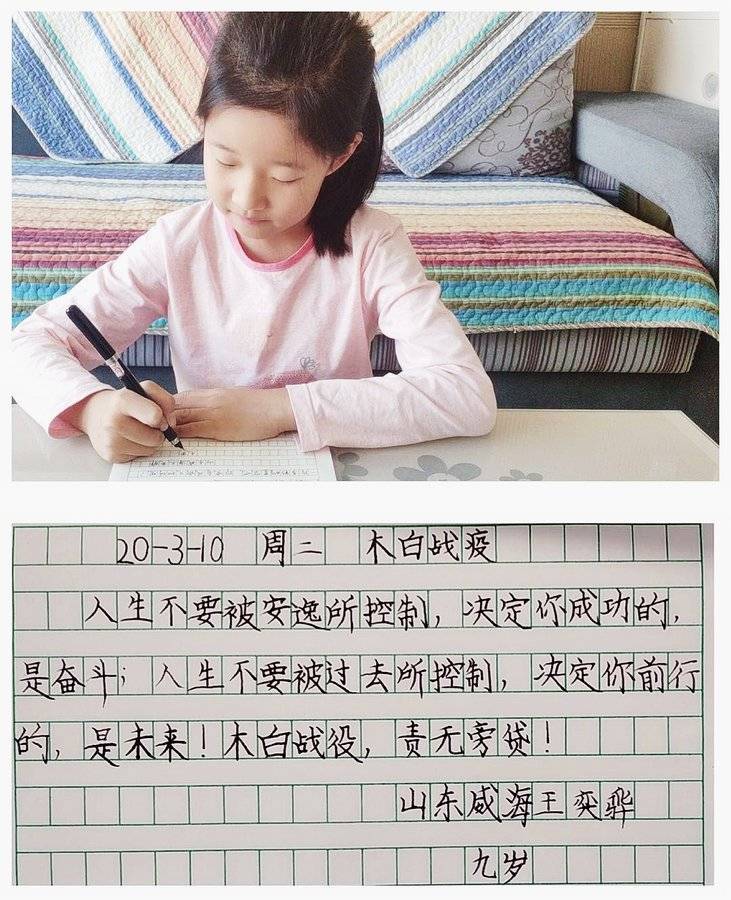 20-3-10 周二 木白战疫
人生不要被安逸所控制，决定你成功的，
是奋斗；人生不要被过去所控制，决定你前行
的，是未来！木白战役，责无旁贷！
山东威海王奕骅
九岁